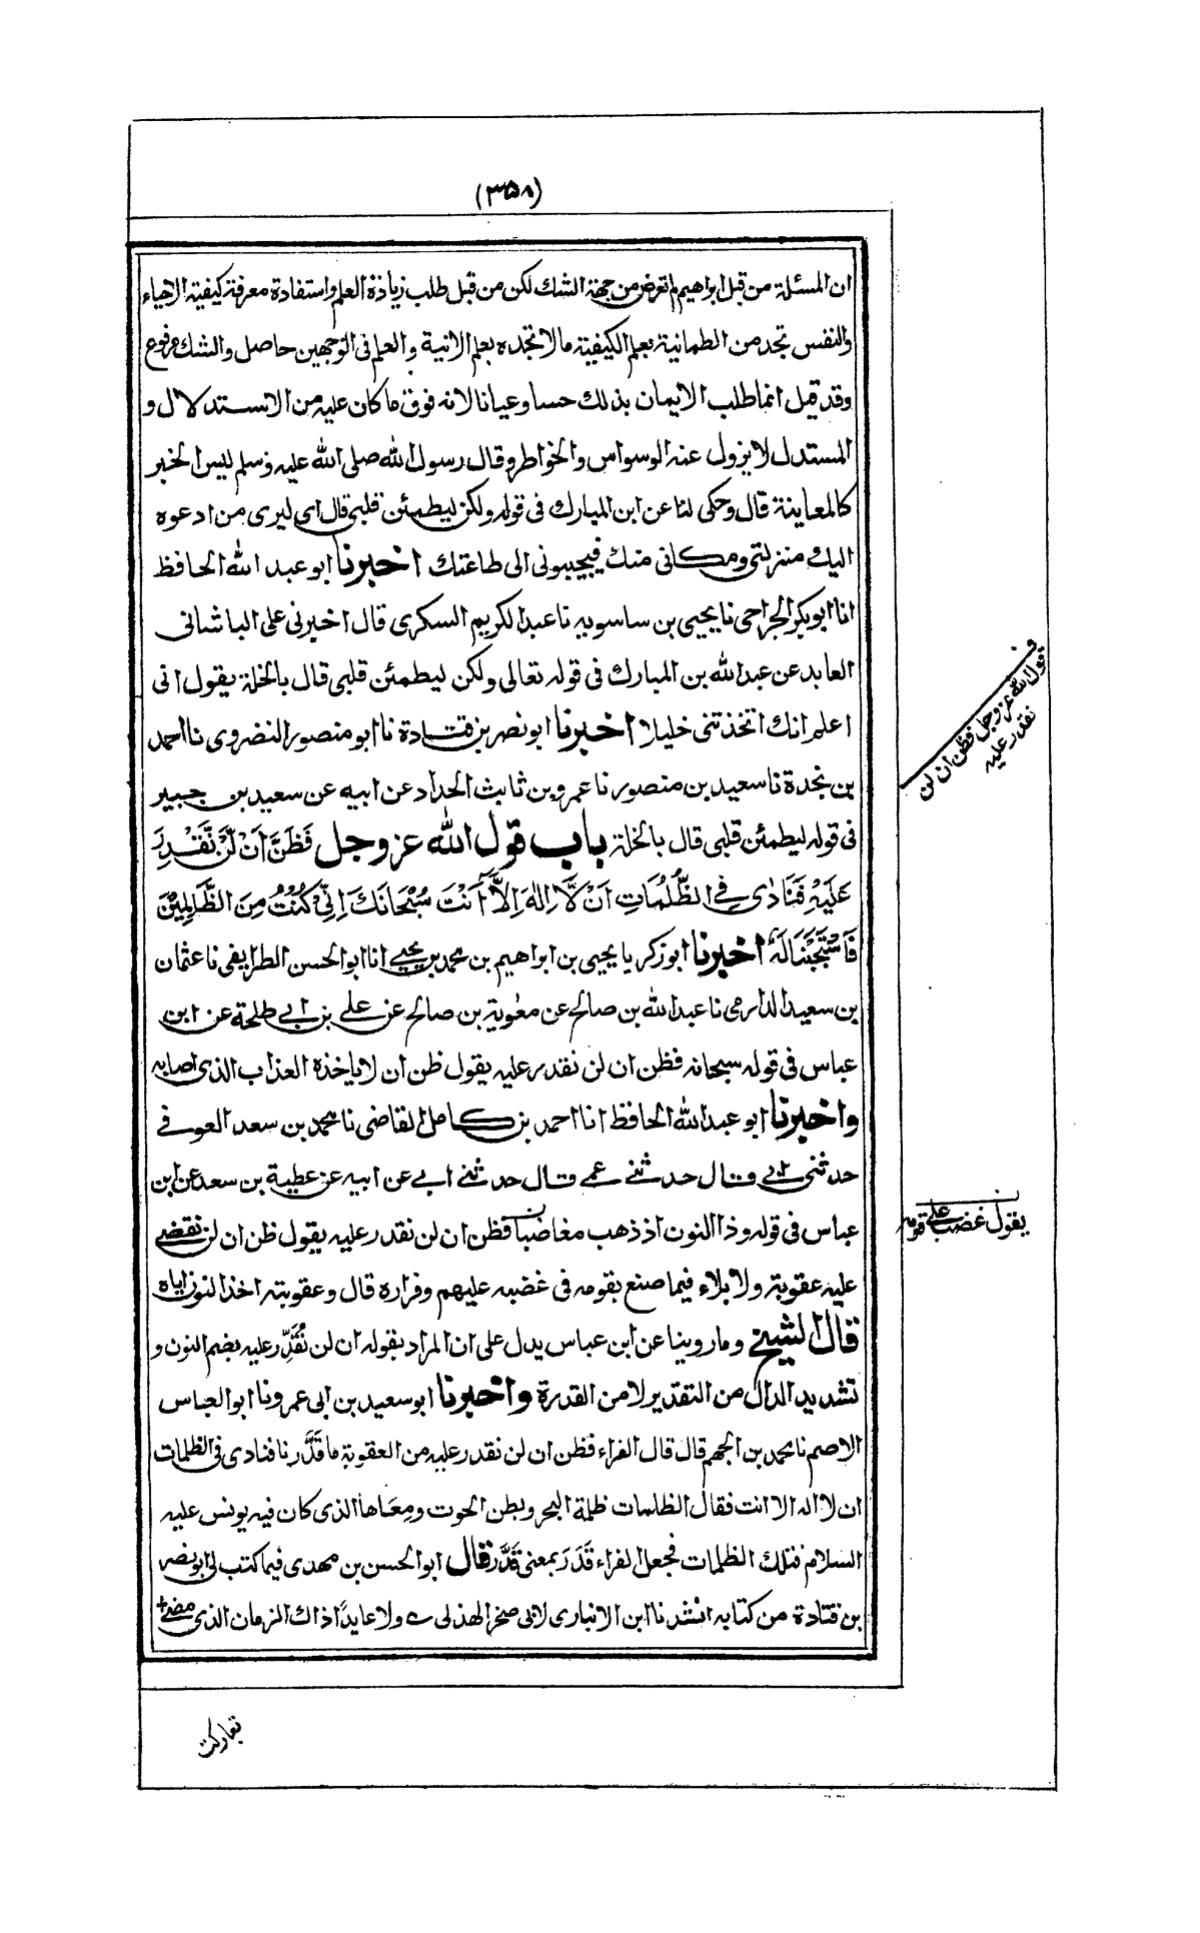 (٣٥٨)
ان المسئلة من قبل ابراهيم لم تعرض من جهة الشك لكن من قبل طلب زيادة العلم واستفادة معرفة كيفية الاحياء
والنفس تجد من الطمانية بعلم الكيفية ما لا تجده بعلم الانية والعلم فى الوجهين حاصل والشك مرفوع
وقد قيل انما طلب الايمان بذلك حسا وعيانا لانه فوق ما كان عليه من الاستدلال و
المستدل لا يزول عنه الوسواس والخواطر وقال رسول الله صلى الله عليه وسلم ليس الخبر
كالمعاينة قال وحكى لنا عن ابن المبارك فى قوله ولكن ليطمئن قلبى قال اى ليرى من ادعوه
اليك منزلتى ومكانى منك فيجيبونى الى طاعتك اخبرنا ابو عبد الله الحافظ
انا ابو بكر الجراحى نا يحيى بن ساسويه نا عبد الكريم السكرى قال اخبرنى على الباشانى
العابد عن عبد الله بن المبارك فى قوله تعالى ولكن ليطمئن قلبى قال بالخلة يقول انى
اعلم انك اتخذتنى خليلا اخبرنا ابو نصر بن قتادة نا ابو منصور النضروى نا احمد
بن نجدة نا سعيد بن منصور نا عمرو بن ثابت الحداد عن ابيه عن سعيد بن جبير
فى قوله ليطمئن قلبى قال بالخلة باب قول الله عز وجل فَظَنَّ اَنْ لَّنْ نَّقْدِرَ
عَلَيْهِ فَنَادٰى فِى الظُّلُمَاتِ اَنْ لَّا اِلٰهَ اِلَّا اَنْتَ سُبْحَانَكَ اِنِّى كُنْتُ مِنَ الظَّالِمِيْنَ
فَاسْتَجَبْنَا لَهٗ اخبرنا ابو زكريا يحيى بن ابراهيم بن محمد بن يحيى انا ابو الحسن الطرايفى نا عثمان
بن سعيد الدارمى نا عبد الله بن صالح عن معٰوية بن صالح عن على بن ابى طلحة عن ابن
عباس فى قوله سبحانه فظن ان لن نقدر عليه يقول ظن ان لا ياخذه العذاب الذى اصابه
واخبرنا ابو عبد الله الحافظ انا احمد بن كامل القاضى نا محمد بن سعد العوفى
حدثنى ابى وقال حدثنى عمى قال حدثنى ابى عن ابيه عن عطية بن سعد عن ابن
عباس فى قوله وذا النون اذ ذهب مغاضبا فظن ان لن نقدر عليه يقول ظن ان لن نقضى
عليه عقوبة ولا بلاء فيما صنع بقومه فى غضبه عليهم وفراره قال وعقوبته اخذ النون اياه
قال الشيخ وما روينا عن ابن عباس يدل على ان المراد بقوله ان لن نُقَدِّر عليه بضم النون و
تشديد الدال من التقدير لا من القدرة واخبرنا ابو سعيد بن ابى عمرو نا ابو العباس
الاصم نا محمد بن الجهم قال قال الفراء فظن ان لن نقدر عليه من العقوبة ما قَدَّرنا فنادى فى الظلمات
ان لا اله الا انت فقال الظلمات ظلمة البحر وبطن الحوت ومعاها الذى كان فيه يونس عليه
السلام فتلك الظلمات فجعل الفراء قَدَرَ بمعنى قَدَّرَ قال ابو الحسن بن مهدى فيما كتب لى ابو نصر
بن قتادة من كتابه انشدنا ابن الانبارى لابى صخر الهذلى ے ولا عايدًا ذاك الزمان الذى مضى
ف
قول الله عز وجل فظن ان لن
نقدر عليه
ن
يقول غضب على قومه
تباركت